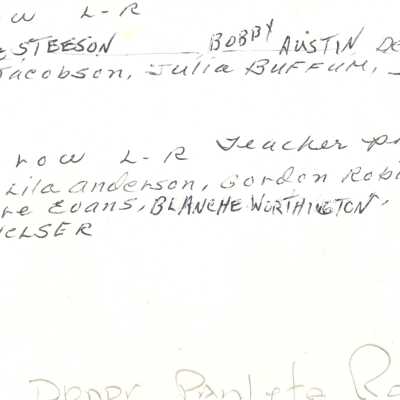 ow L-R
STEESON BOBBY AUSTIN De
Jacobson, Julia BUFFUM,
row L-R Teacher
Lila anderson, Gordon Robi
re Evans, BLANCHE WORTHINGTON,
ELSER
Donor Paulete Ro